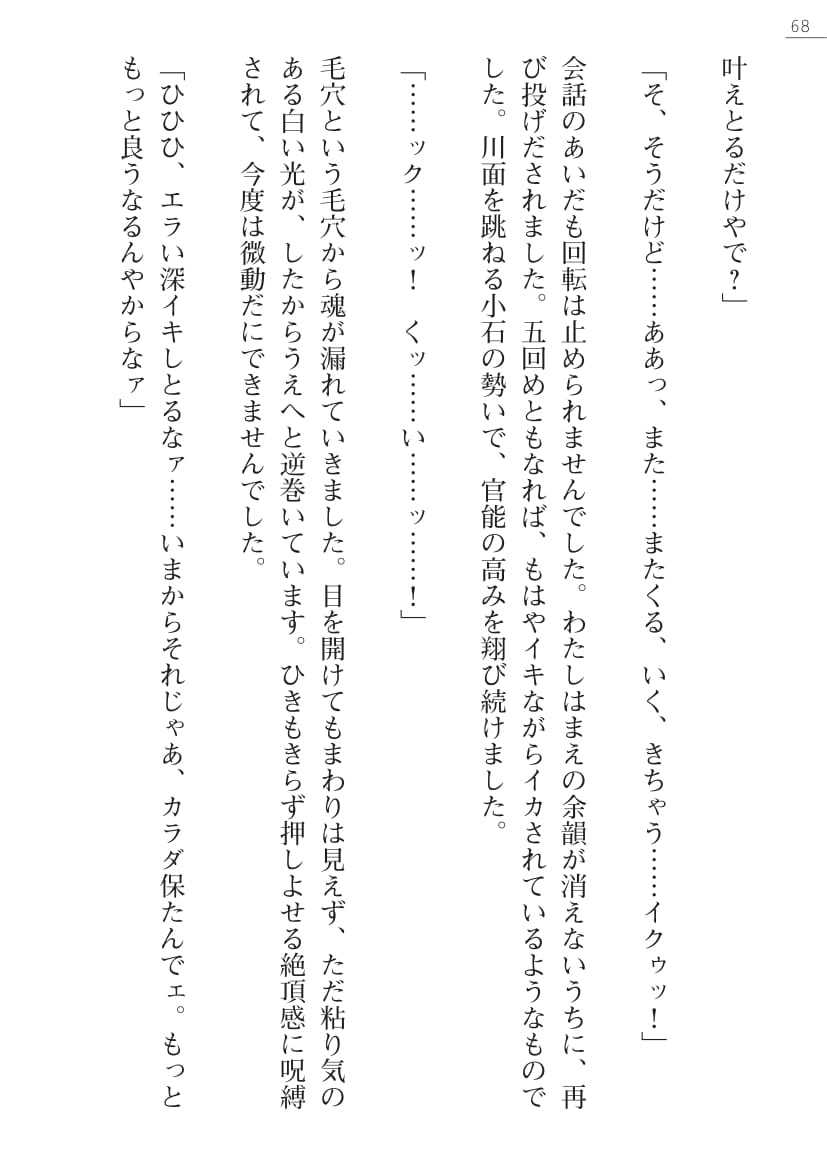 68
叶えとるだけやで？」
「そ、そうだけど……ああっ、また……またくる、いく、きちゃう……イクゥッ！」
会話のあいだも回転は止められませんでした。わたしはまえの余韻が消えないうちに、再
び投げだされました。五回めともなれば、もはやイキながらイカされているようなもので
した。川面を跳ねる小石の勢いで、官能の高みを翔び続けました。
「……ック……ッ！　くッ……い……ッ……！」
毛穴という毛穴から魂が漏れていきました。目を開けてもまわりは見えず、ただ粘り気の
ある白い光が、したからうえへと逆巻いています。ひきもきらず押しよせる絶頂感に呪縛
されて、今度は微動だにできませんでした。
「ひひひ、エラい深イキしとるなァ……いまからそれじゃあ、カラダ保たんでェ。もっと
もっと良うなるんやからなァ」